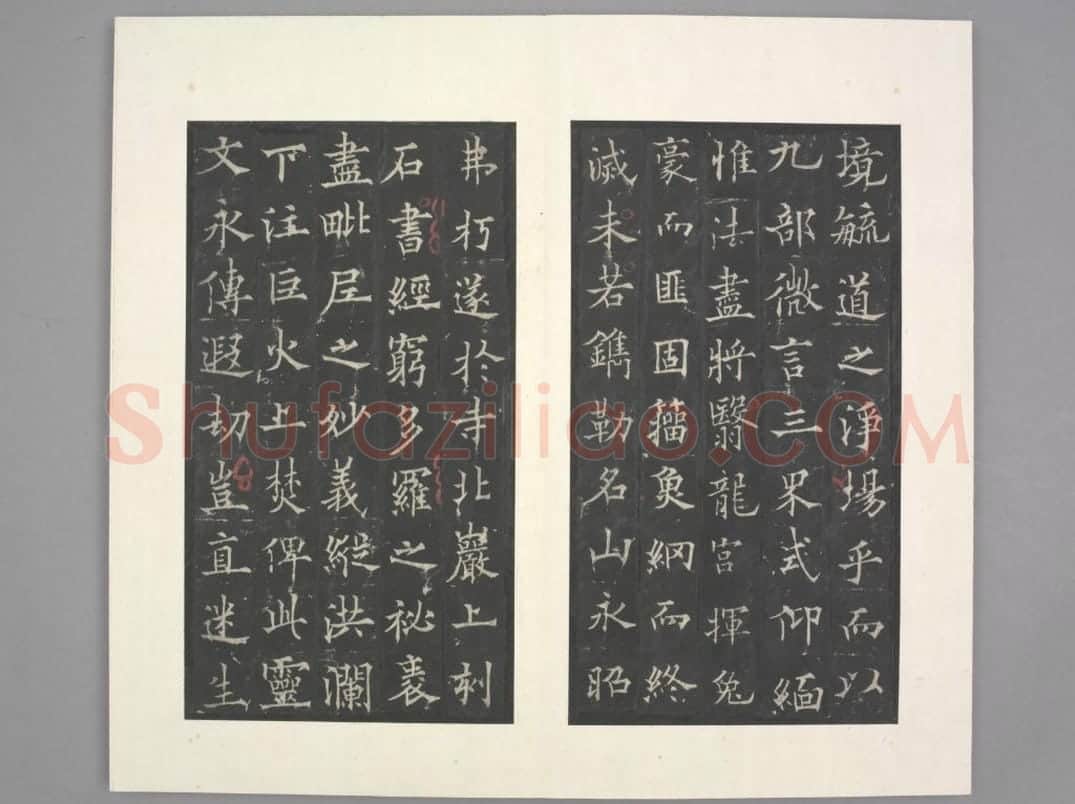 境毓道之淨場乎而以
九部微言三界式仰緬
惟法盡將翳龍宮揮兔
豪而匪固籀魚網而終
滅未若鐫勒名山永昭
弗朽遂於寺北巖上刻
石書經窮多羅之祕袠
盡毗尼之妙義縱洪瀾
下注巨火上焚俾此靈
文永傳遐劫豈直迷生
Shufaziliao.COM